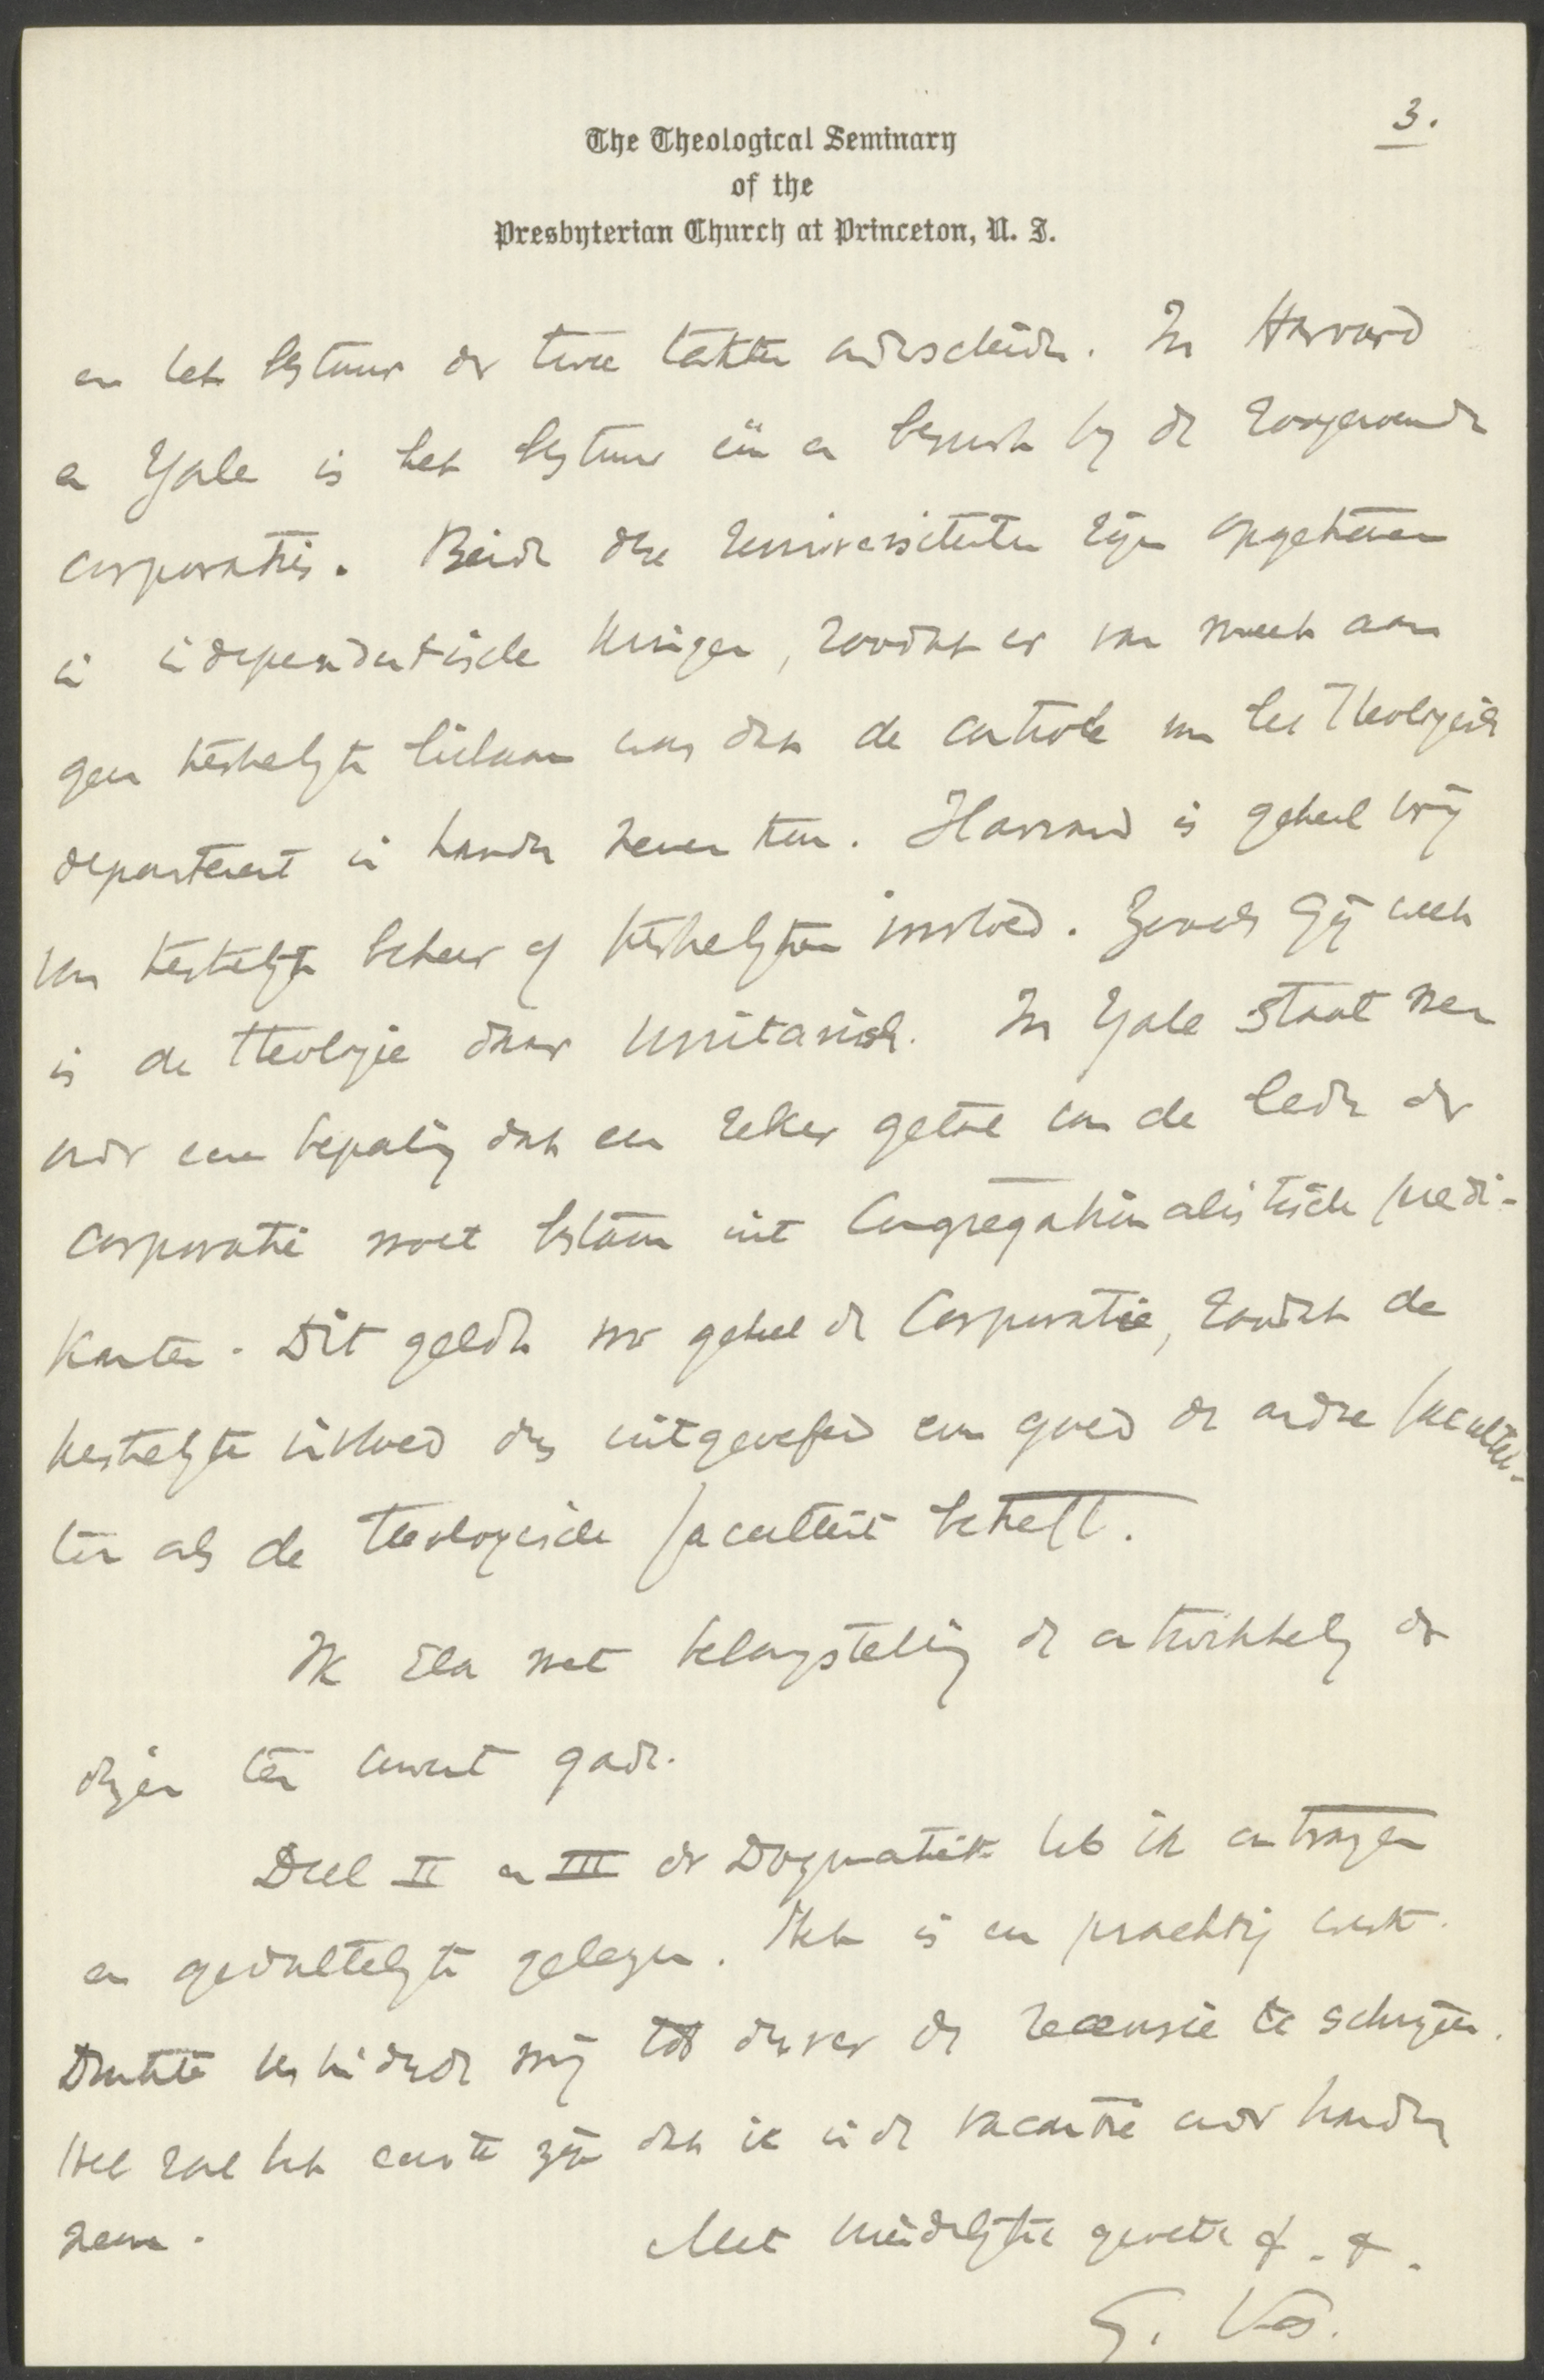 3.
The Theological Seminary
of the
Presbyterian Church at Princeton, N. J.
en het bestuur der twee takken onderscheiden. In Harvard
en Yale is het bestuur één en berust bij de zoogenaamde
corporatie. Beide deze universiteiten zijn opgekomen
in independentische kringen, zoodat er van meet aan
geen kerkelijk lichaam was dat de controle van het Theologisch
departement in handen nemen kon. Harvard is geheel vrij
van kerkelijk beheer of kerkelijken invloed. Zooals gij weet
is de theologie daar Unitarisch. In Yale staat men
onder een bepaling dat een zeker getal van de leden der
corporatie moet bestaan uit Congregationalistische predi-
kanten. Dit geldt voor geheel de Corporatie, zoodat de
kerkelijke invloed dus uitgeoefend evengoed de andre facultei-
ten als de theologische faculteit betreft.
Ik sla met belangstelling de ontwikkeling der
dingen ten uwent gade.
Deel II en III der Dogmatiek heb ik ontvangen
en gedeeltelijk gelezen. Het is een prachtig werk.
Drukte verhinderde mij tot dusver de recensie te schrijven.
Het zal het eerste zijn dat ik in de vacantie onder handen
neem.
Met vriendelijke groeten &. &.
G. Vos.